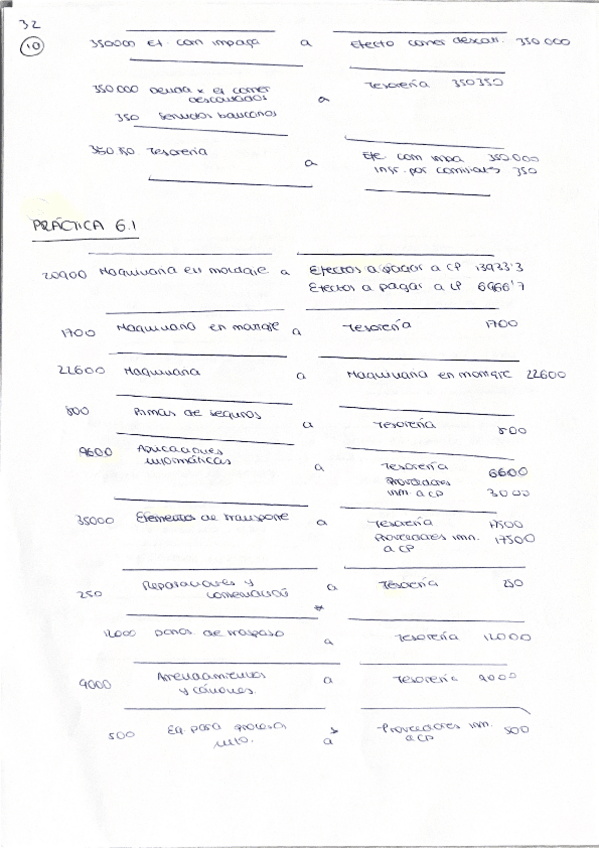 32
10
350000 Ef. com impaga a Efecto comer descon. 350 000
350 000 Deuda x ef comer
descontados a Tesorería 350350
350 Servicios bancarios
350 350 Tesorería a Efe com impa 350.000
Ingr. por comisiones 350
PRÁCTICA 6.1
20900 Maquinaria en montaje a Efectos a pagar a CP 13933'3
Efectos a pagar a LP 6966'7
1700 Maquinaria en montaje a Tesorería 1700
22600 Maquinaria a Maquinaria en montaje 22600
800 Primas de seguros a Tesorería 800
9600 Aplicaciones
informáticas a Tesorería 6600
Proveedores
inm a cp 3000
35000 Elementos de transporte a Tesorería 17500
Proveedores inm. 17500
a CP
250 Reparaciones y
conservación a Tesorería 250
*
12000 Dchos de traspaso a Tesorería 12000
9000 Arrendamientos
y cánones a Tesorería 9000
500 Eq para procesos
info. a Proveedores inm. 500
a CP